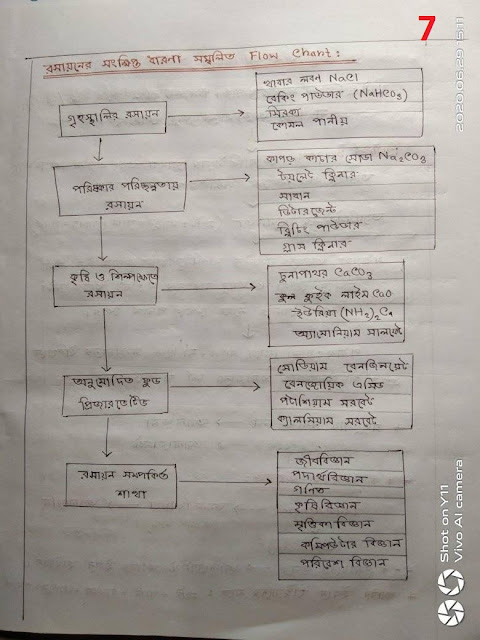 7
রসায়নের সংক্ষিপ্ত ধারণা সম্বলিত Flow Chart:
গৃহস্থালির রসায়ন
খাবার লবণ NaCl
বেকিং পাউডার (NaHCO3)
সিরকা
কোমল পানীয়
পরিষ্কার পরিচ্ছন্নতায়
রসায়ন
কাপড় কাচার সোডা Na2CO3
টয়লেট ক্লিনার
সাবান
ডিটারজেন্ট
ব্লিচিং পাউডার
গ্লাস ক্লিনার
কৃষি ও শিল্পক্ষেত্রে
রসায়ন
চুনাপাথর CaCO3
কুইক লাইম CaO
ইউরিয়া (NH2)2C
অ্যামোনিয়াম সালফেট
অনুমোদিত ফুড
প্রিজারভেটিভ
সোডিয়াম বেনজয়েট
বেনজোয়িক এসিড
পটাশিয়াম সরবেট
ক্যালসিয়াম সরবেট
রসায়ন সম্পর্কিত
শাখা
জীববিজ্ঞান
পদার্থবিজ্ঞান
গণিত
কৃষিবিজ্ঞান
মৃত্তিকা বিজ্ঞান
কম্পিউটার বিজ্ঞান
পরিবেশ বিজ্ঞান
2020.05.29 15:11
Shot on Y11
Vivo AI camera